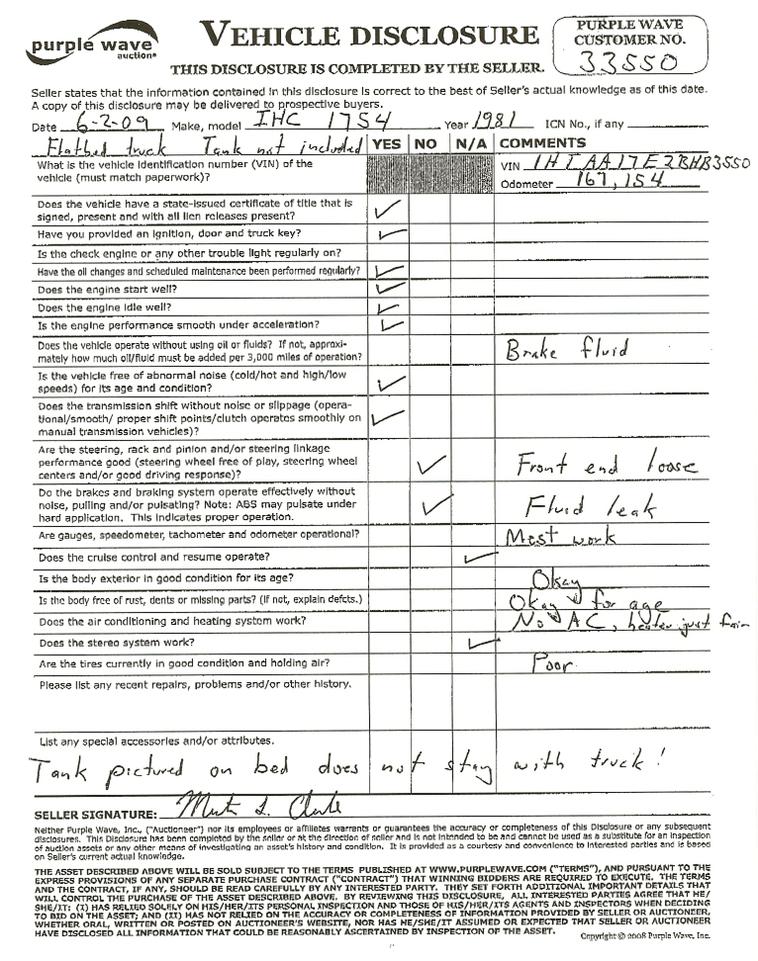 purple wave
auction®
VEHICLE DISCLOSURE
THIS DISCLOSURE IS COMPLETED BY THE SELLER.
PURPLE WAVE
CUSTOMER NO.
33550
Seller states that the information contained in this disclosure is correct to the best of Seller's actual knowledge as of this date.
A copy of this disclosure may be delivered to prospective buyers.
Date 6-2-09 Make, model IHC 1754 Year 1981 ICN No., if any
Flatbed truck Tank not included YES NO N/A COMMENTS
What is the vehicle identification number (VIN) of the
vehicle (must match paperwork)?
VIN 1HTAA17E2BHB3550
Odometer 167,154
Does the vehicle have a state-issued certificate of title that is
signed, present and with all lien releases present? ✓
Have you provided an ignition, door and truck key? ✓
Is the check engine or any other trouble light regularly on?
Have the oil changes and scheduled maintenance been performed regularly? ✓
Does the engine start well? ✓
Does the engine idle well? ✓
Is the engine performance smooth under acceleration? ✓
Does the vehicle operate without using oil or fluids? If not, approxi-
mately how much oil/fluid must be added per 3,000 miles of operation? Brake fluid
Is the vehicle free of abnormal noise (cold/hot and high/low
speeds) for its age and condition? ✓
Does the transmission shift without noise or slippage (opera-
tional/smooth/ proper shift points/clutch operates smoothly on ✓
manual transmission vehicles)?
Are the steering, rack and pinion and/or steering linkage
performance good (steering wheel free of play, steering wheel ✓ Front end loose
centers and/or good driving response)?
Do the brakes and braking system operate effectively without
noise, pulling and/or pulsating? Note: ABS may pulsate under ✓ Fluid leak
hard application. This indicates proper operation.
Are gauges, speedometer, tachometer and odometer operational? Most work
Does the cruise control and resume operate? ✓
Is the body exterior in good condition for its age? Okay
Is the body free of rust, dents or missing parts? (if not, explain defcts.) Okay for age
Does the air conditioning and heating system work? No AC, heater just fair
Does the stereo system work? ✓
Are the tires currently in good condition and holding air? Poor
Please list any recent repairs, problems and/or other history.
List any special accessories and/or attributes.
Tank pictured on bed does not stay with truck!
SELLER SIGNATURE:
Neither Purple Wave, Inc., ("Auctioneer") nor its employees or affiliates warrants or guarantees the accuracy or completeness of this Disclosure or any subsequent
disclosures. This Disclosure has been completed by the seller or at the direction of seller and is not intended to be and cannot be used as a substitute for an inspection
of auction assets or any other means of investigating an asset's history and condition. It is provided as a courtesy and convenience to interested parties and is based
on Seller's current actual knowledge.
THE ASSET DESCRIBED ABOVE WILL BE SOLD SUBJECT TO THE TERMS PUBLISHED AT WWW.PURPLEWAVE.COM ("TERMS"), AND PURSUANT TO THE
EXPRESS PROVISIONS OF ANY SEPARATE PURCHASE CONTRACT ("CONTRACT") THAT WINNING BIDDERS ARE REQUIRED TO EXECUTE. THE TERMS
AND THE CONTRACT, IF ANY, SHOULD BE READ CAREFULLY BY ANY INTERESTED PARTY. THEY SET FORTH ADDITIONAL IMPORTANT DETAILS THAT
WILL CONTROL THE PURCHASE OF THE ASSET DESCRIBED ABOVE. BY REVIEWING THIS DISCLOSURE, ALL INTERESTED PARTIES AGREE THAT HE/
SHE/IT: (I) HAS RELIED SOLELY ON HIS/HER/ITS PERSONAL INSPECTION AND THOSE OF HIS/HER/ITS AGENTS AND INSPECTORS WHEN DECIDING
TO BID ON THE ASSET; AND (II) HAS NOT RELIED ON THE ACCURACY OR COMPLETENESS OF INFORMATION PROVIDED BY SELLER OR AUCTIONEER,
WHETHER ORAL, WRITTEN OR POSTED ON AUCTIONEER'S WEBSITE, NOR HAS HE/SHE/IT ASSUMED OR EXPECTED THAT SELLER OR AUCTIONEER
HAVE DISCLOSED ALL INFORMATION THAT COULD BE REASONABLY ASCERTAINED BY INSPECTION OF THE ASSET.
Copyright © 2008 Purple Wave, Inc.